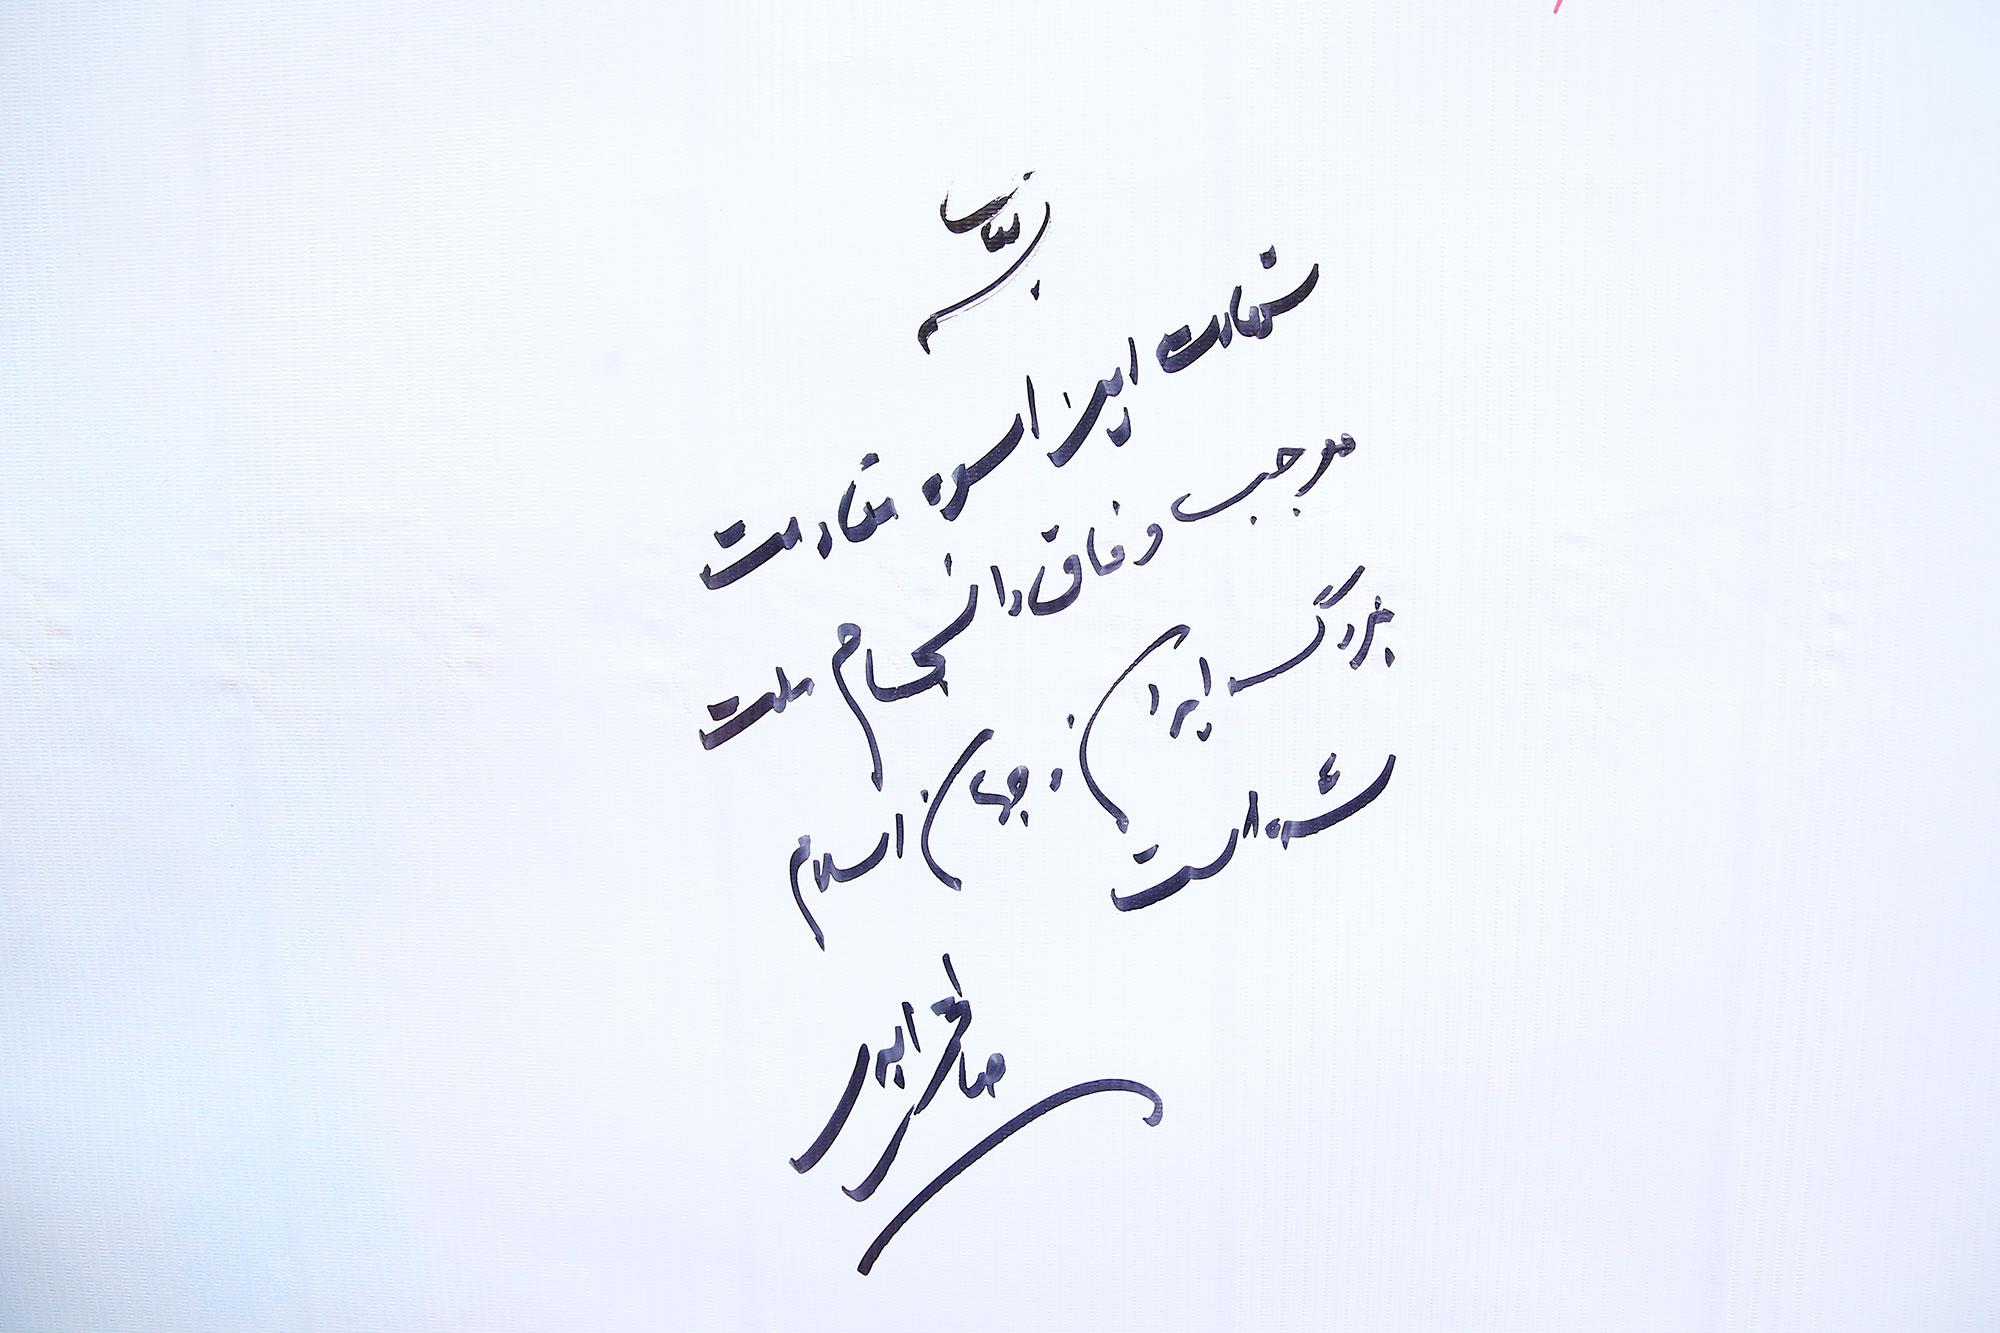 شهادت این اسوه مقاومت
موجب وفاق و انسجام ملت
بزرگ ایران و جهان اسلام
شده است